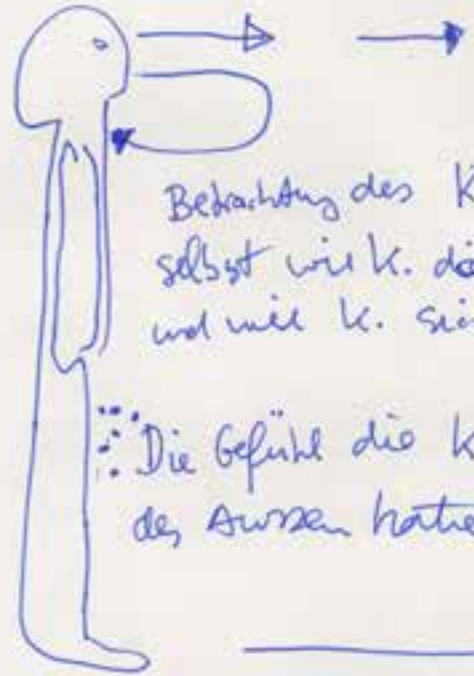 Betrachtung des K
selbst wie K. da
und wie K. sic
Die Gefühl die K
des Aussen hatte